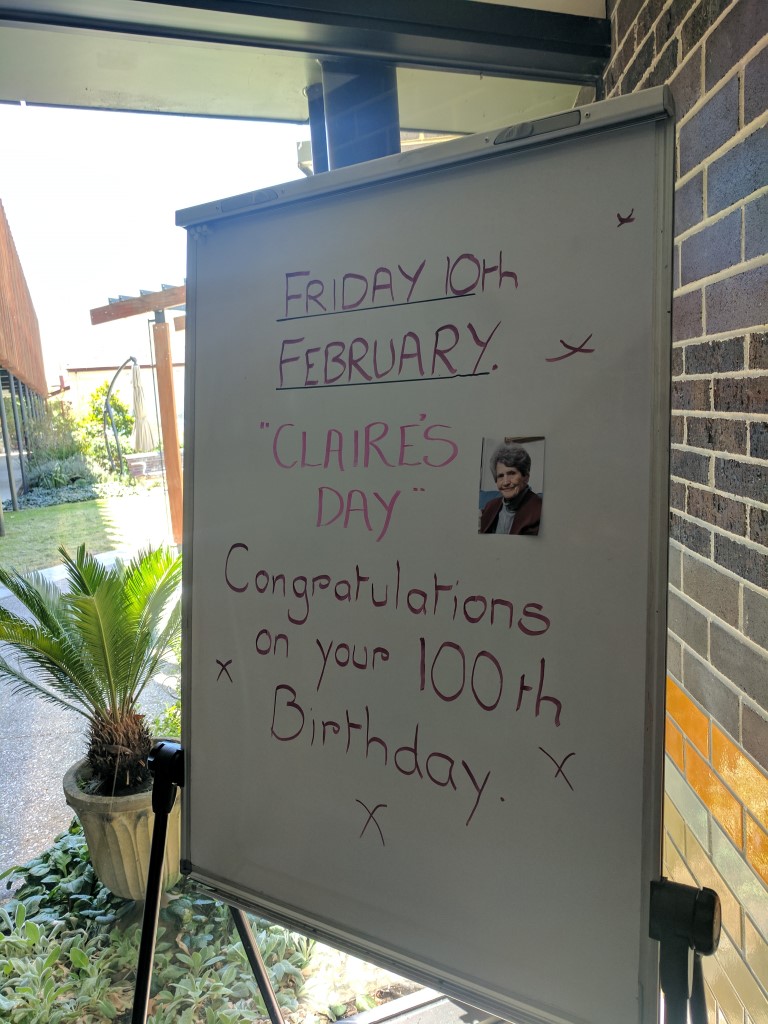 FRIDAY 10th
FEBRUARY.
"CLAIRE'S
DAY"
Congratulations
on your 100th
Birthday.